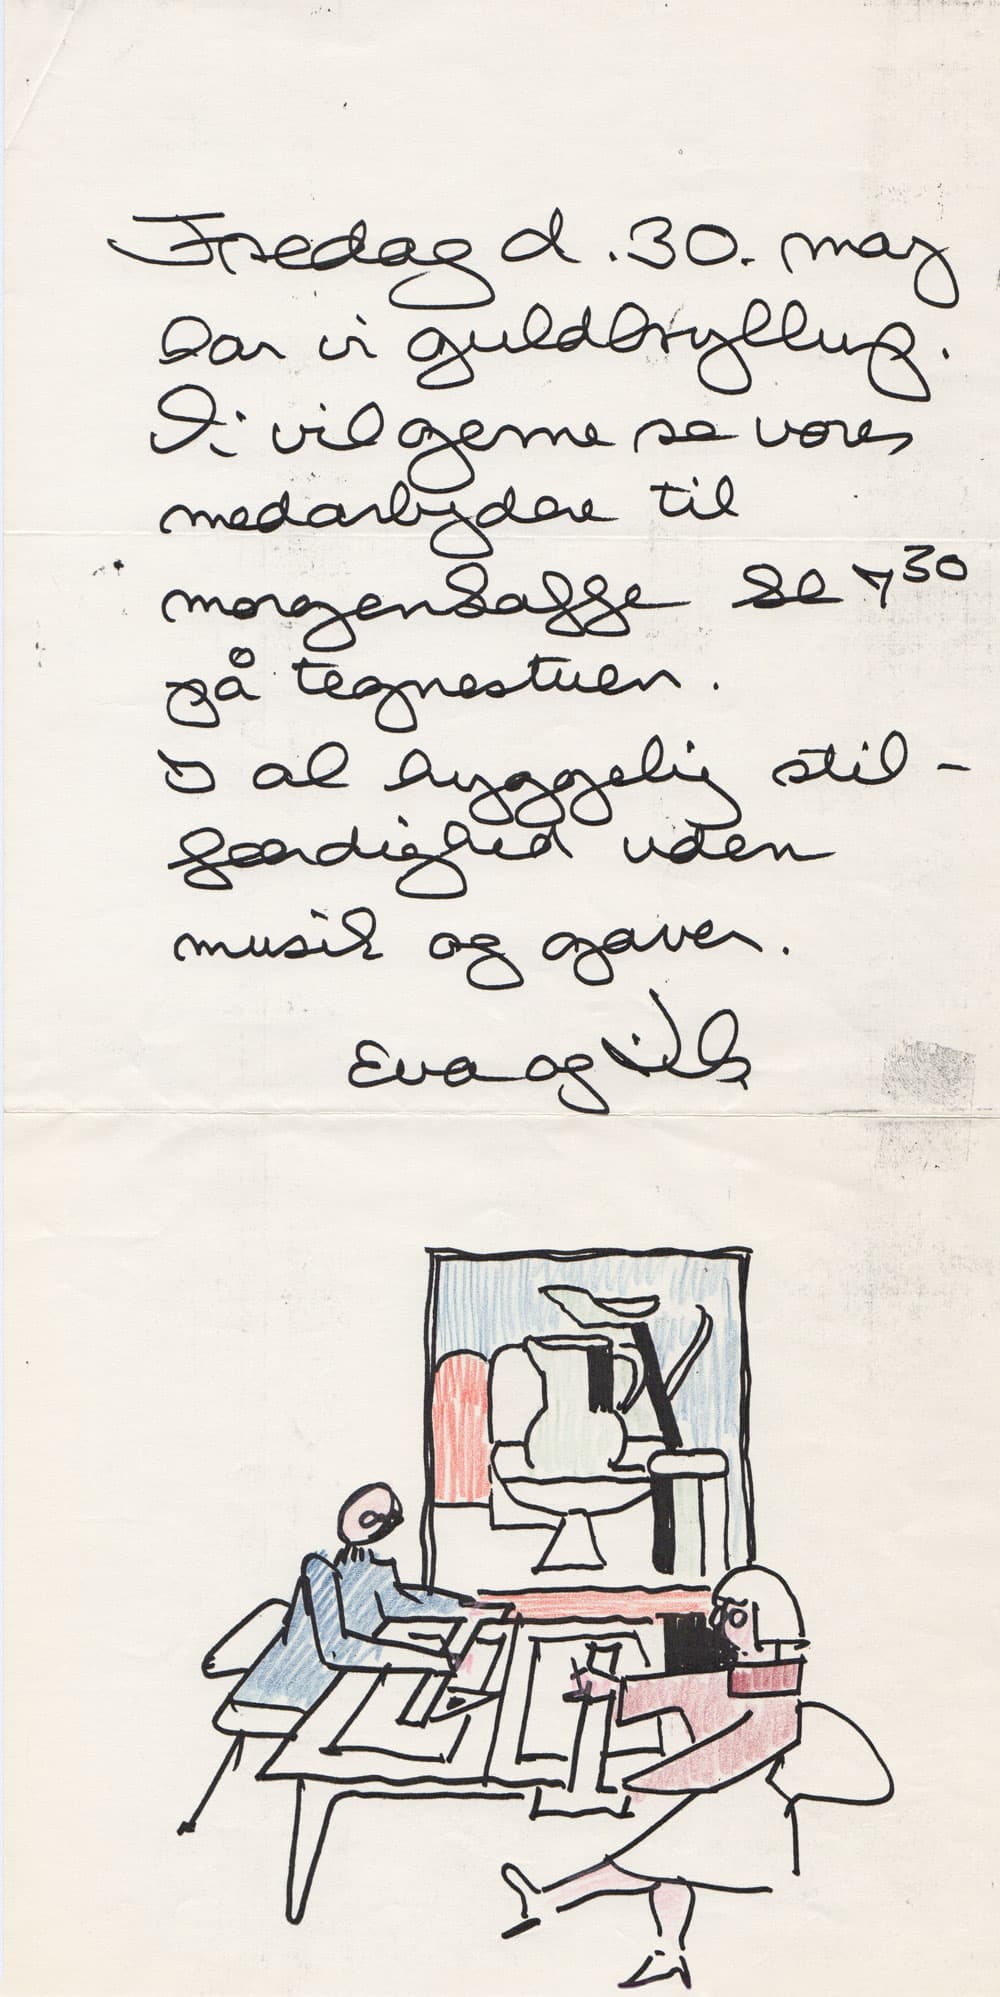 Fredag d. 30. maj
har vi guldbryllup.
Vi vil gerne se vores
medarbejdere til
morgenkaffe kl 7³⁰
på tegnestuen.
I al hyggelig stil-
færdighed uden
musik og gaver.
Eva og Nils